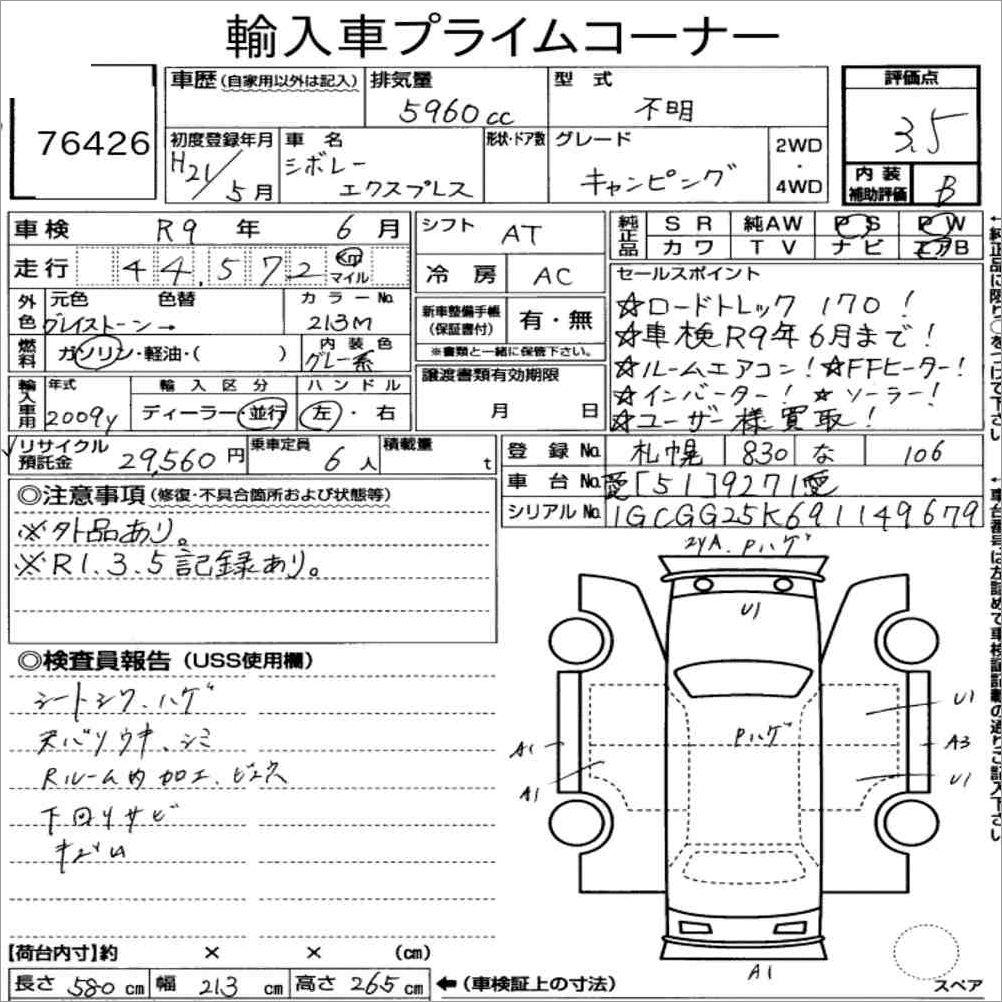 輸入車プライムコーナー
76426
車歴(自家用以外は記入) 排気量 5960cc 型式 不明 評価点 3.5
初度登録年月 H21/5月 車名 シボレー エクスプレス 形状・ドア数 グレード キャンピング 2WD・4WD 内装補助評価 B
車検 R9年 6月 シフト AT 純正品 SR 純AW PS PW
カワ TV ナビ エアB
走行 44,572 km マイル 冷房 AC
セールスポイント
☆ロードトレック 170!
☆車検R9年6月まで!
☆ルームエアコン!☆FFヒーター!
☆インバーター!☆ソーラー!
☆ユーザー様買取!
外色 元色 色替 カラーNo. グレイストーン→ 213M
新車整備手帳(保証書付) 有・無
※書類と一緒に保管下さい。
燃料 ガソリン・軽油・( ) 内装色 グレー系
譲渡書類有効期限 月 日
輸入車用 年式 2009y 輸入区分 ディーラー・並行 ハンドル 左・右
リサイクル預託金 29,560円 乗車定員 6人 積載量 t
登録No. 札幌 830 な 106
車台No. 愛[51]9271愛
シリアルNo. 1GCGG25K691149679
◎注意事項(修復・不具合箇所および状態等)
※外品あり。
※R1.3.5記録あり。
◎検査員報告(USS使用欄)
シートシワ、ハゲ
天バリウキ、シミ
Rルーム内加工、ビス穴
下回リサビ
キズム
2YA、Pハゲ
U1
Pハゲ
U1
A1
A3
A1
U1
A1
スペア
【荷台内寸】約 × × (cm)
長さ 580cm 幅 213cm 高さ 265cm ←(車検証上の寸法)
←純正品に限り○をつけて下さい
←車台番号は左詰めで車検証記載の通りご記入下さい